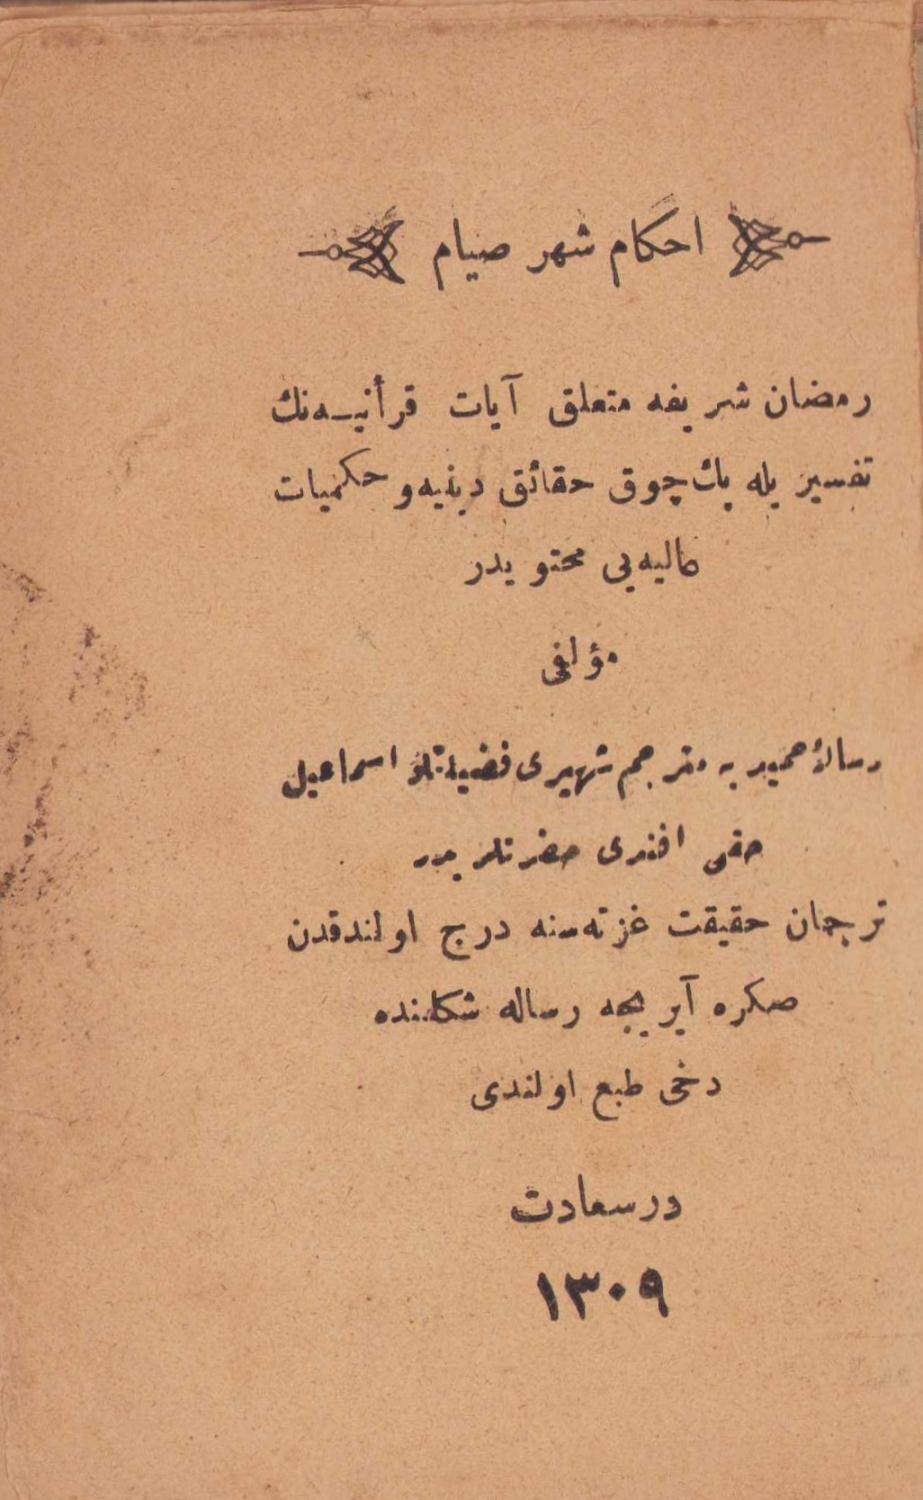 احكام شهر صيام
رمضان شريفه متعلق آيات قرأنيه‌نك
تفسيريله پك چوق حقائق دينيه و حكميات
عاليه‌يی محتويدر
مؤلفی
رسالهٔ حميديه مترجم شهيری فضيلتلو اسماعيل
حقی افندی حضرتلريدر
ترجمان حقيقت غزته‌سنه درج اولندقدن
صكره آيريجه رساله شكلنده
دخی طبع اولندی
درسعادت
١٣٠٩